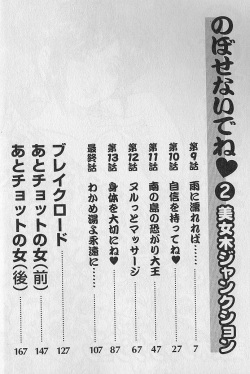 のぼせないでね♥2 美女木ジャンクション
第9話 雨に濡れれば…… 7
第10話 自信を持ってね♥ 27
第11話 南の島の恐がり大王 47
第12話 ヌルっとマッサージ 67
第13話 身体を大切にね♥ 87
最終話 わかめ湯よ永遠に…… 107
ブレイクロード 127
あとチョットの女(前) 147
あとチョットの女(後) 167